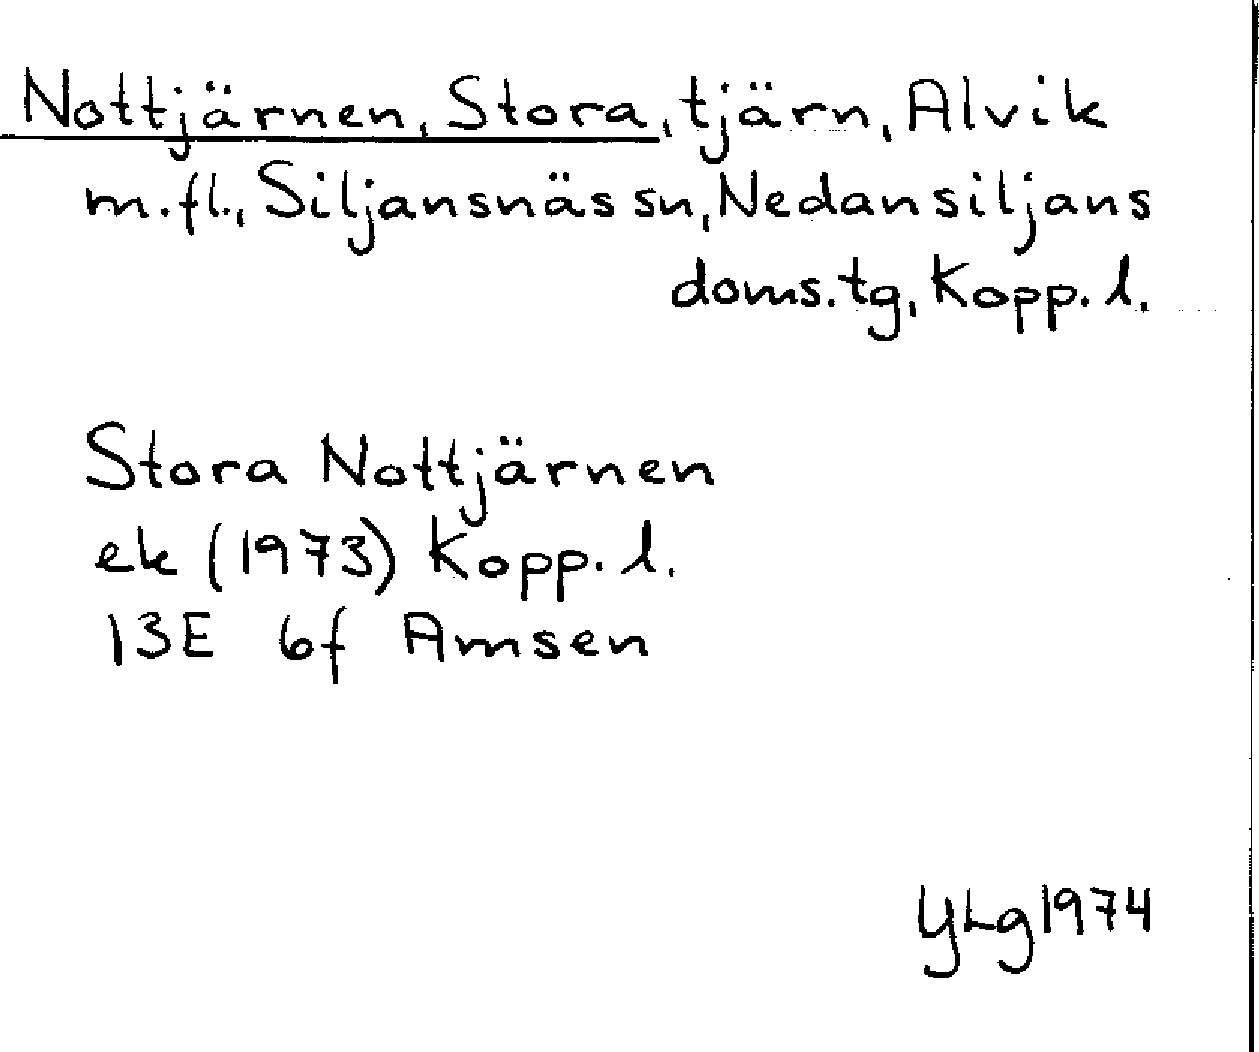 Nottjärnen, Stora, tjärn, Alvik
m.fl., Siljansnäs sn, Nedansiljans
doms.tg, Kopp. l.
Stora Nottjärnen
ek (1973) Kopp. l.
13E 6f Amsen
YLg 1974